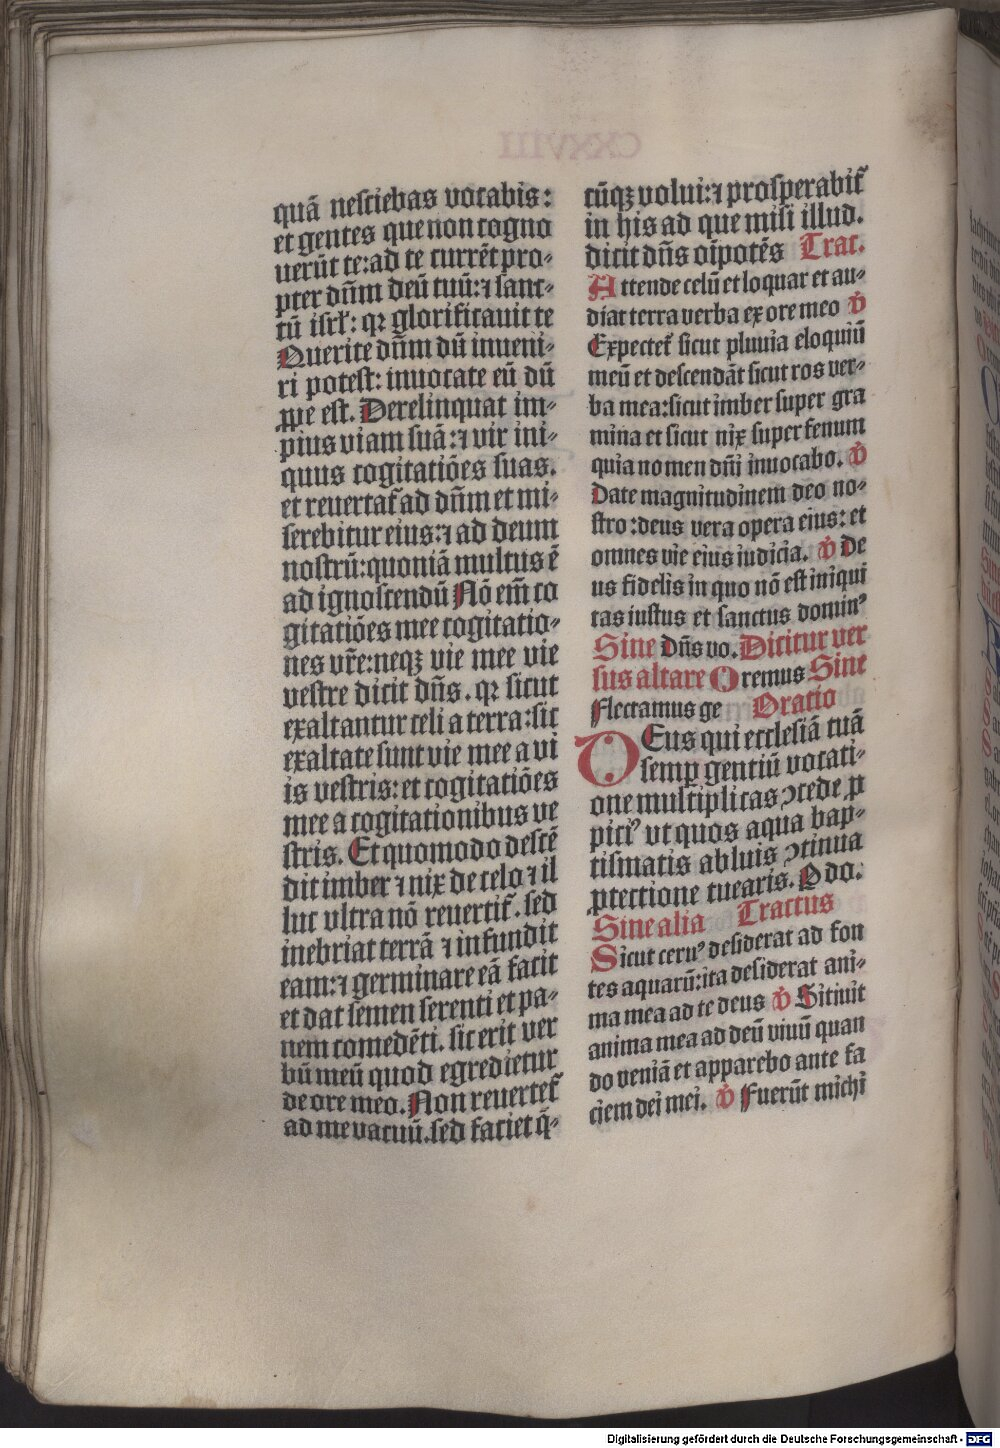 quā nesciebas vocabis:
et gentes que non cogno
uerūt te: ad te currēt pro-
pter dn̄m deū tuū: ⁊ sanc-
tū isrl̓: qꝛ glorificauit te
Querite dn̄m dū inueni-
ri potest: inuocate eū dū
ꝓpe est. Derelinquat im-
pius viam suā: ⁊ vir ini-
quus cogitatiōes suas.
et reuertat̄ ad dn̄m et mi-
serebitur eius: ⁊ ad deum
nostrū: quoniā multus ē
ad ignoscendū Nō em̄ co
gitatiōes mee cogitatio-
nes vr̄e: neqꝫ vie mee vie
vestre dicit dn̄s. qꝛ sicut
exaltantur celi a terra: sic
exaltate sunt vie mee a vi
is vestris: et cogitatiōes
mee a cogitationibus ve
stris. Et quomodo descē
dit imber ⁊ nix de celo ⁊ il
luc vltra nō reuertit̄. sed
inebriat terrā ⁊ infundit
eam: ⁊ germinare eā facit
et dat semen serenti et pa-
nem comedēti. sic erit ver
bū meū quod egredietur
de ore meo. Non reuertet̄
ad me vacuū. sed faciet q̄-
cūqꝫ volui: ⁊ prosperabit̄
in his ad que misi illud.
dicit dn̄s oīpotēs Trac.
Attende celū et loquar et au-
diat terra verba ex ore meo v̓
Expectet̄ sicut pluuia eloquiū
meū et descendāt sicut ros ver-
ba mea: sicut imber super gra
mina et sicut nix super fenum
quia nomen dn̄i inuocabo. v̓
Date magnitudinem deo no-
stro: deus vera opera eius: et
omnes vie eius iudicia. v̓ De
us fidelis in quo nō est iniqui
tas iustus et sanctus dominꝰ
Sine dn̄s vo. Dicitur ver
sus altare Oremus Sine
Flectamus ge Oratio
DEus qui ecclesiā tuā
semꝑ gentiū vocati-
one multiplicas ↄcede ꝓ
piciꝰ vt quos aqua bap-
tismatis abluis ↄtinua
ꝓtectione tuearis. P do.
Sine alia Tractus
Sicut ceruꝰ desiderat ad fon
tes aquarū: ita desiderat ani-
ma mea ad te deus v̓ Sitiuit
anima mea ad deū viuū quan
do veniā et apparebo ante fa
ciem dei mei. v̓ Fuerūt michi
Digitalisierung gefördert durch die Deutsche Forschungsgemeinschaft - DFG